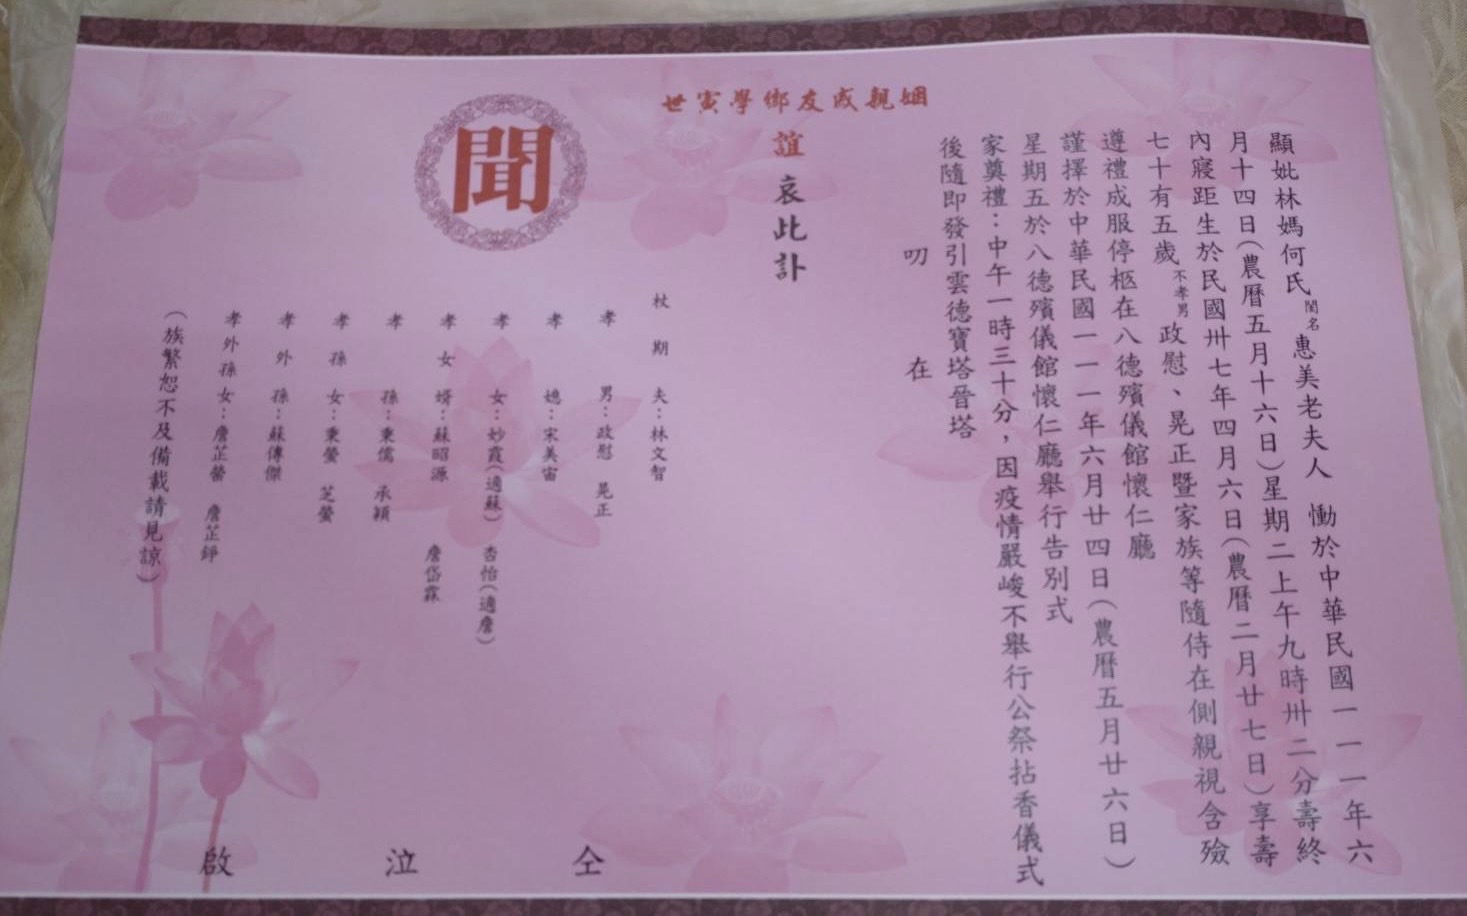 顯妣林媽何氏閨名惠美老夫人 慟於中華民國一一一年六
月十四日(農曆五月十六日)星期二上午九時卅二分壽終
內寢距生於民國卅七年四月六日(農曆二月廿七日)享壽
七十有五歲不孝男政慰、晃正暨家族等隨侍在側親視含殮
遵禮成服停柩在八德殯儀館懷仁廳
謹擇於中華民國一一一年六月廿四日(農曆五月廿六日)
星期五於八德殯儀館懷仁廳舉行告別式
家奠禮:中午一時三十分,因疫情嚴峻不舉行公祭拈香儀式
後隨即發引雲德寶塔晉塔
叨 在
姻親戚友鄉學寅世
誼 哀此訃
聞
杖期夫:林文智
孝男:政慰 晃正
孝媳:宋美宙
孝女:妙霞(適蘇) 杏怡(適詹)
孝女婿:蘇昭源 詹岱霖
孝孫:秉儒 承穎
孝孫女:秉瑩 芝螢
孝外孫:蘇傳傑
孝外孫女:詹芷 詹芷錚
(族繁恕不及備載請見諒)
仝 泣 啟